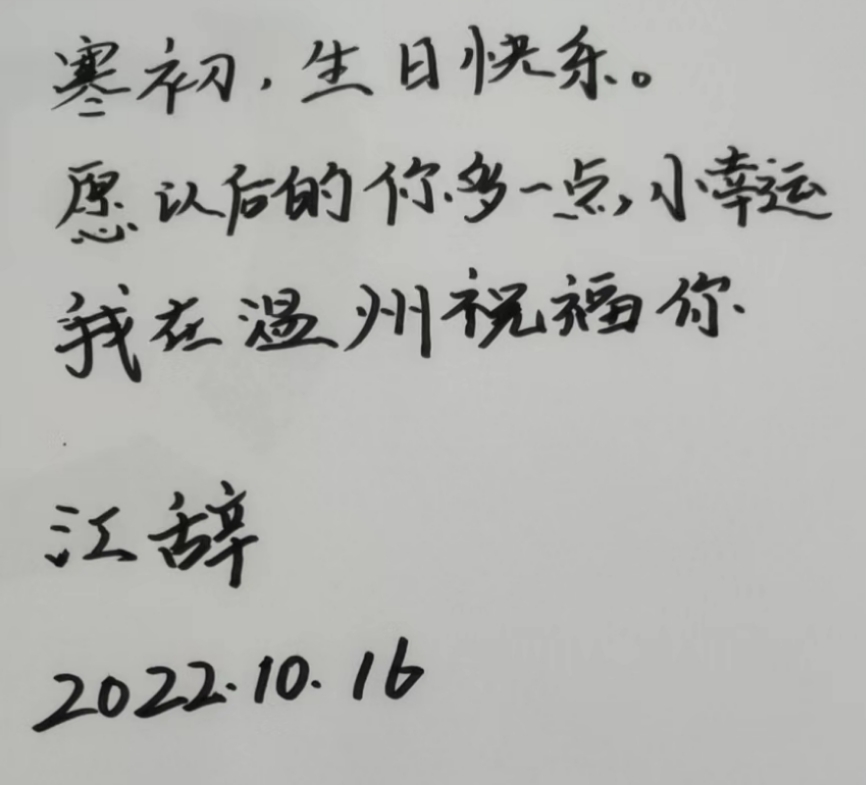 寒初，生日快乐。
愿以后的你多一点，小幸运
我在温州祝福你
江辞
2022.10.16